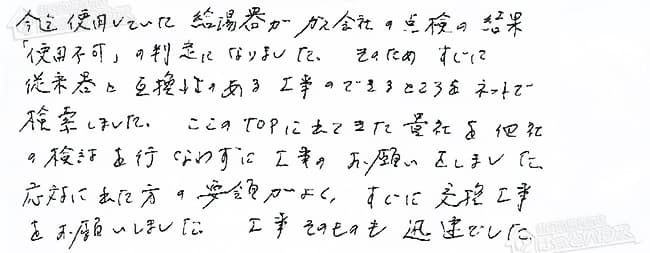 今迄使用していた給湯器がガス会社の点検の結果
「使用不可」の判定になりました。そのためすぐに
従来器と互換性のある工事のできるところをネットで
検索しました。ここのTOPに出てきた貴社を他社
の検討を行なわずに工事のお願いをしました。
応対に出た方の要領がよく、すぐに交換工事
をお願いしました。工事そのものも迅速でした。